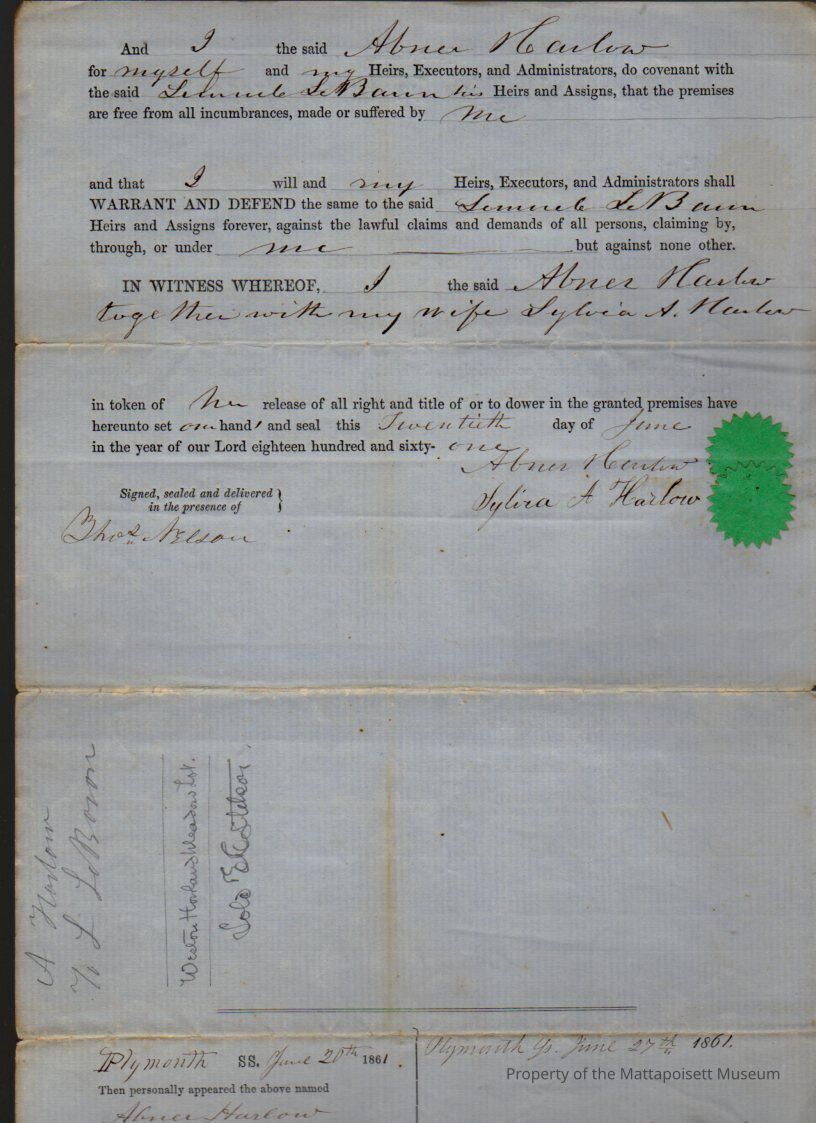 And I the said Abner Harlow
for myself and my Heirs, Executors, and Administrators, do covenant with
the said Lemuel LeBaron his Heirs and Assigns, that the premises
are free from all incumbrances, made or suffered by me
and that I will and my Heirs, Executors, and Administrators shall
WARRANT AND DEFEND the same to the said Lemuel LeBaron
Heirs and Assigns forever, against the lawful claims and demands of all persons, claiming by,
through, or under me but against none other.
IN WITNESS WHEREOF, I the said Abner Harlow
together with my wife Sylvia A. Harlow
in token of her release of all right and title of or to dower in the granted premises have
hereunto set our hand' and seal this Twentieth day of June
in the year of our Lord eighteen hundred and sixty- one
Abner Harlow
Sylvia A Harlow
Signed, sealed and delivered }
in the presence of
Thos. Nelson
A Harlow
To L LeBaron
Weston Howland Meadow Lot.
Sold
Plymouth SS. June 20th 1861
Then personally appeared the above named
Abner Harlow
Plymouth Ss. June 27th 1861.
Property of the Mattapoisett Museum